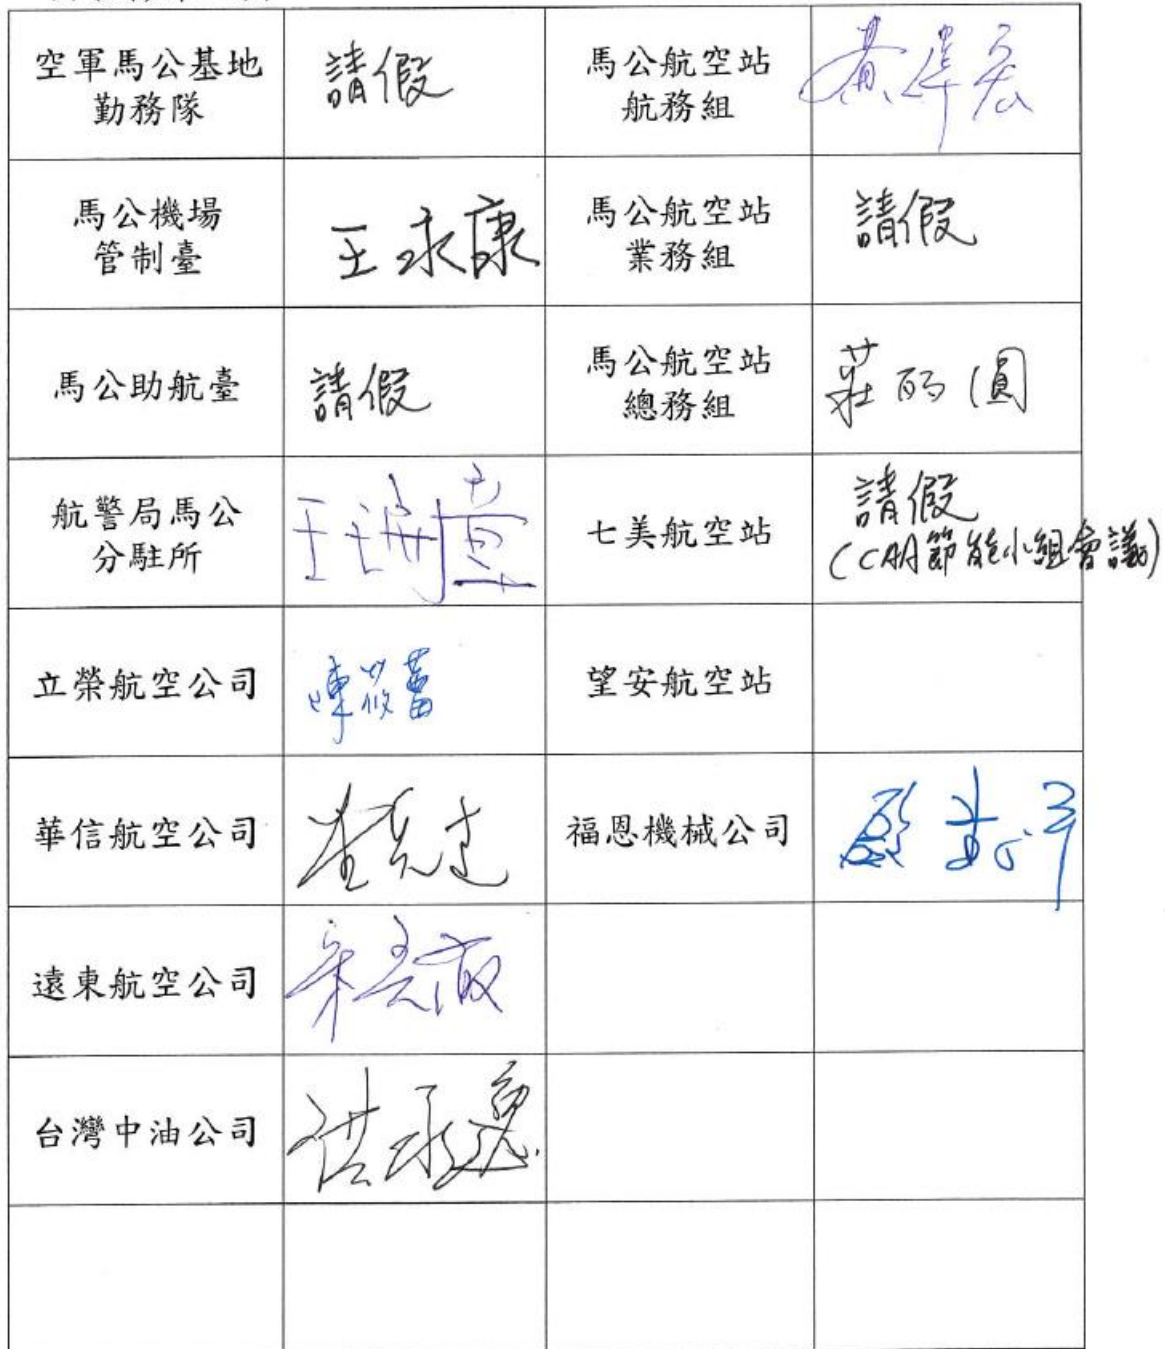 空軍馬公基地
勤務隊
請假
馬公航空站
航務組
馬公機場
管制臺
王永康
馬公航空站
業務組
請假
馬公助航臺
請假
馬公航空站
總務組
航警局馬公
分駐所
七美航空站
請假
(CAA節能小組會議)
立榮航空公司
望安航空站
華信航空公司
福恩機械公司
遠東航空公司
台灣中油公司
洪永